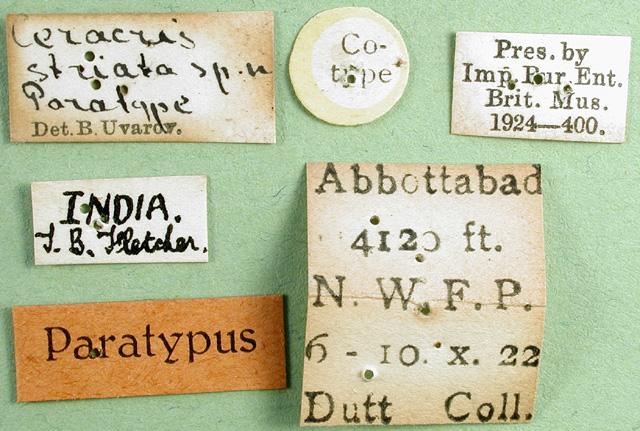 Ceracris
striata sp. n
Paratype
Det. B. Uvarov.
Co-
type
Pres. by
Imp. Bur. Ent.
Brit. Mus.
1924—400.
INDIA.
T. B. Fletcher.
Abbottabad
4120 ft.
N. W. F. P.
6 - 10. x. 22
Dutt Coll.
Paratypus